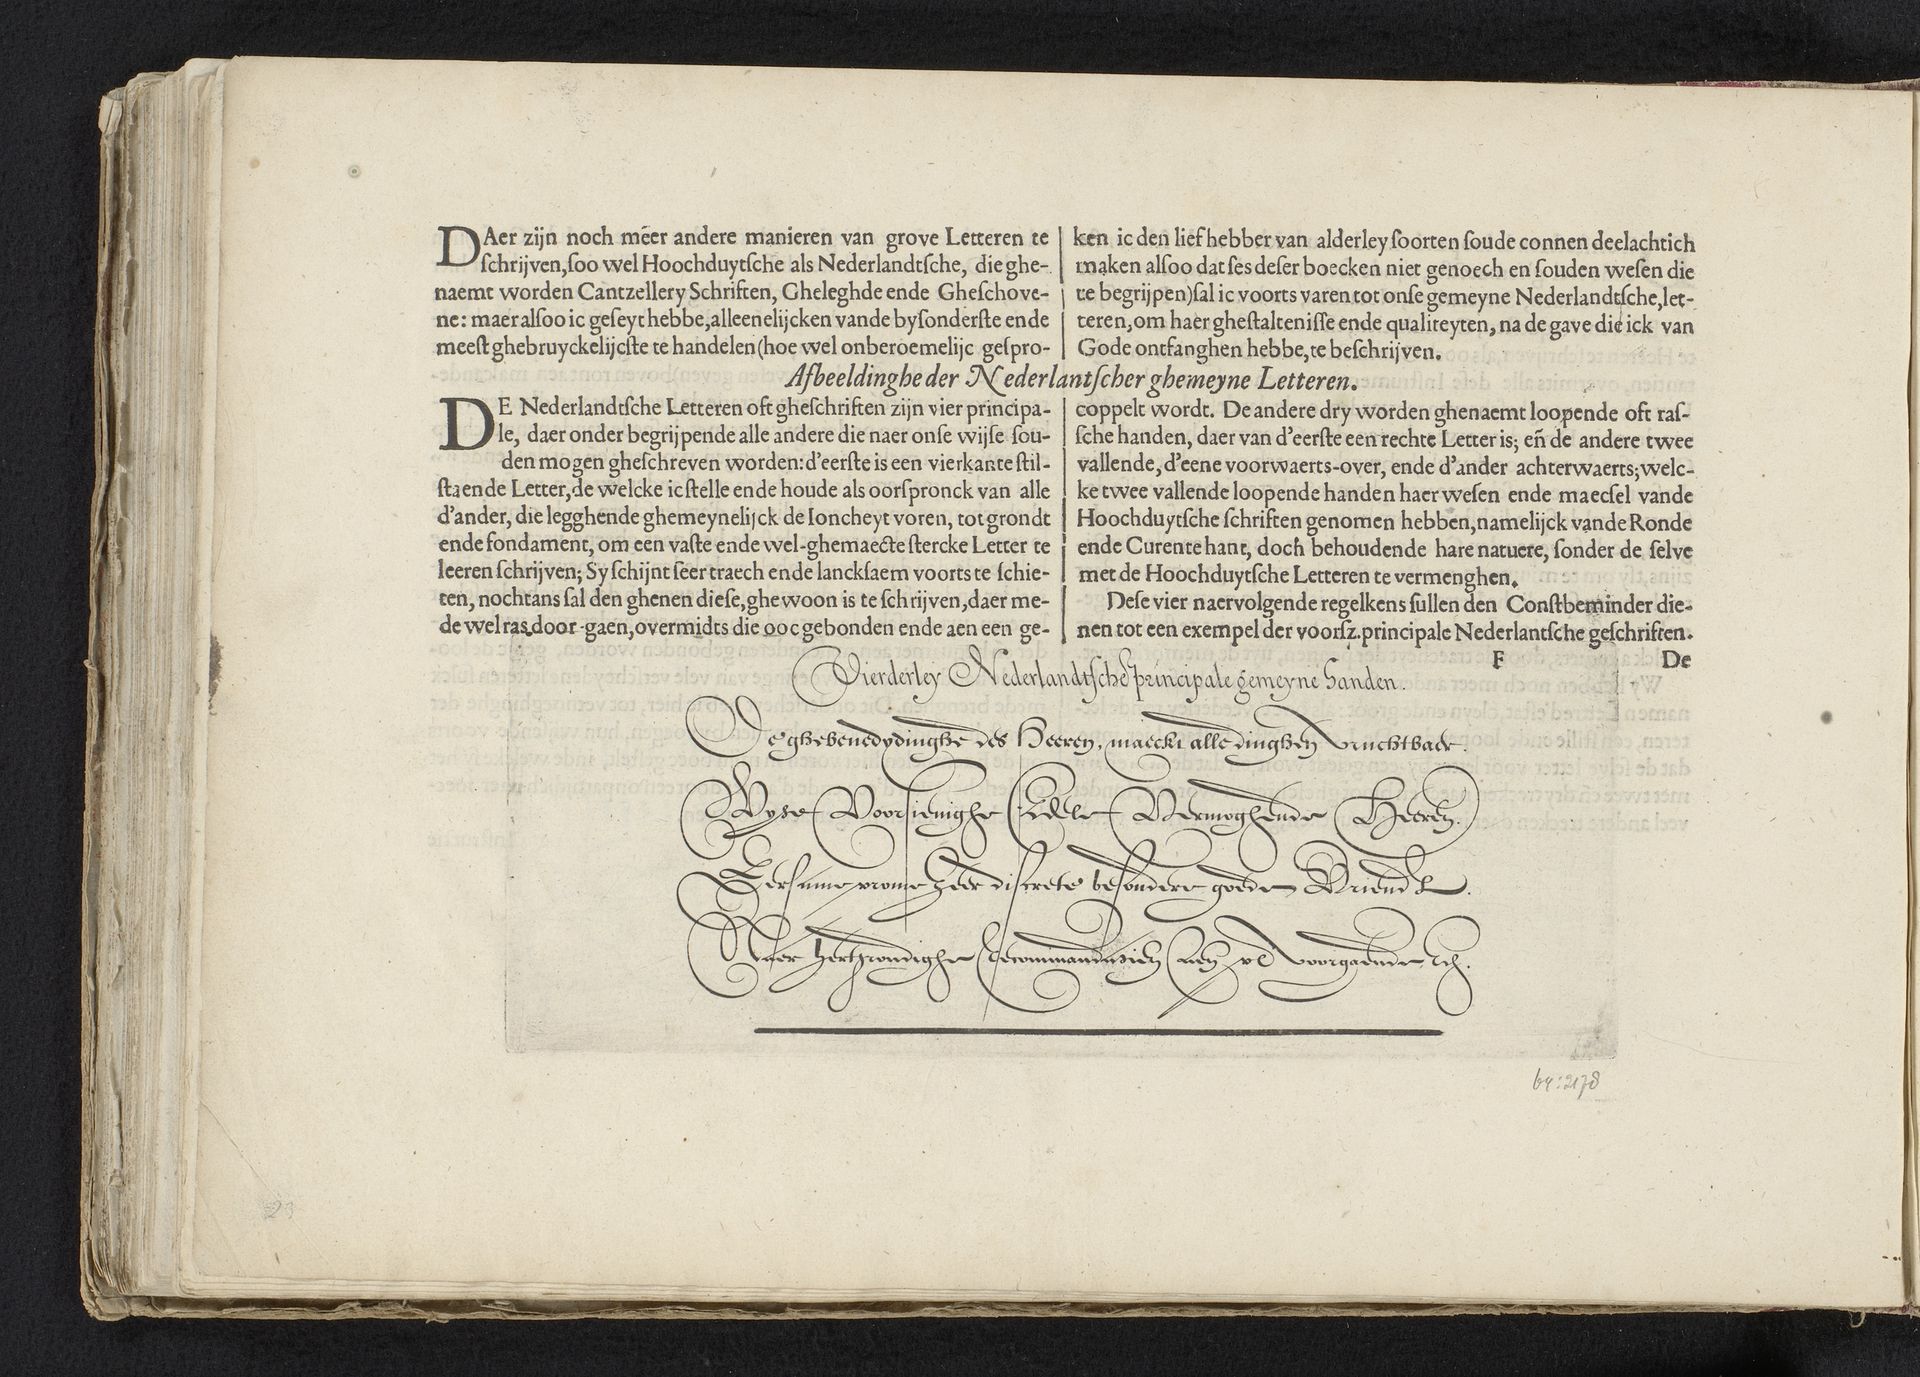 DAer zijn noch mẽer andere manieren van grove Letteren te
ſchrijven, ſoo wel Hoochduytſche als Nederlandtſche, die ghe-
naemt worden Cantzellery Schriften, Gheleghde ende Gheſchove-
ne: maer alſoo ic geſeyt hebbe, alleenelijcken vande byſonderſte ende
meeſt ghebruyckelijcſte te handelen (hoe wel onberoemelijc geſpro-
ken ic den liefhebber van alderley ſoorten ſoude connen deelachtich
maken alſoo dat ſes deſer boecken niet genoech en ſouden weſen die
te begrijpen) ſal ic voorts varen tot onſe gemeyne Nederlandtſche, let-
teren, om haer gheſtalteniſſe ende qualiteyten, na de gave die ick van
Gode ontfanghen hebbe, te beſchrijven.
Afbeeldinghe der Nederlantſcher ghemeyne Letteren.
DE Nederlandtſche Letteren oft gheſchriften zijn vier principa-
le, daer onder begrijpende alle andere die naer onſe wijſe ſou-
den mogen gheſchreven worden: d'eerſte is een vierkante ſtil-
ſtaende Letter, de welcke ic ſtelle ende houde als oorſpronck van alle
d'ander, die legghende ghemeynelijck de Ioncheyt voren, tot grondt
ende fondament, om een vaſte ende wel-ghemaecte ſtercke Letter te
leeren ſchrijven; Sy ſchijnt ſeer traech ende lanckſaem voorts te ſchie-
ten, nochtans ſal den ghenen dieſe, ghewoon is te ſchrijven, daer me-
de wel ras door-gaen, overmidts die ooc gebonden ende aen een ge-
coppelt wordt. De andere dry worden ghenaemt loopende oft raſ-
ſche handen, daer van d'eerſte een rechte Letter is; eñ de andere twee
vallende, d'eene voorwaerts-over, ende d'ander achterwaerts; welc-
ke twee vallende loopende handen haer weſen ende maecſel vande
Hoochduytſche ſchriften genomen hebben, namelijck vande Ronde
ende Curente hant, doch behoudende hare natuere, ſonder de ſelve
met de Hoochduytſche Letteren te vermenghen.
Deſe vier naervolgende regelkens ſullen den Conſtbeminder die-
nen tot een exempel der voorſz. principale Nederlantſche geſchriften.
F De
Vierderley Nederlandtſche principale gemeyne Handen.
De ghebenedydinghe des Heeren, maeckt alle dinghen vruchtbaer.
Wyse Voorsienighe Edele Vermoghende Heeren.
Eersame vrome zeer discrete besondere goede Vriendt.
Naer hertgrondighe Recommandatien
voorgaende
64:2178
23